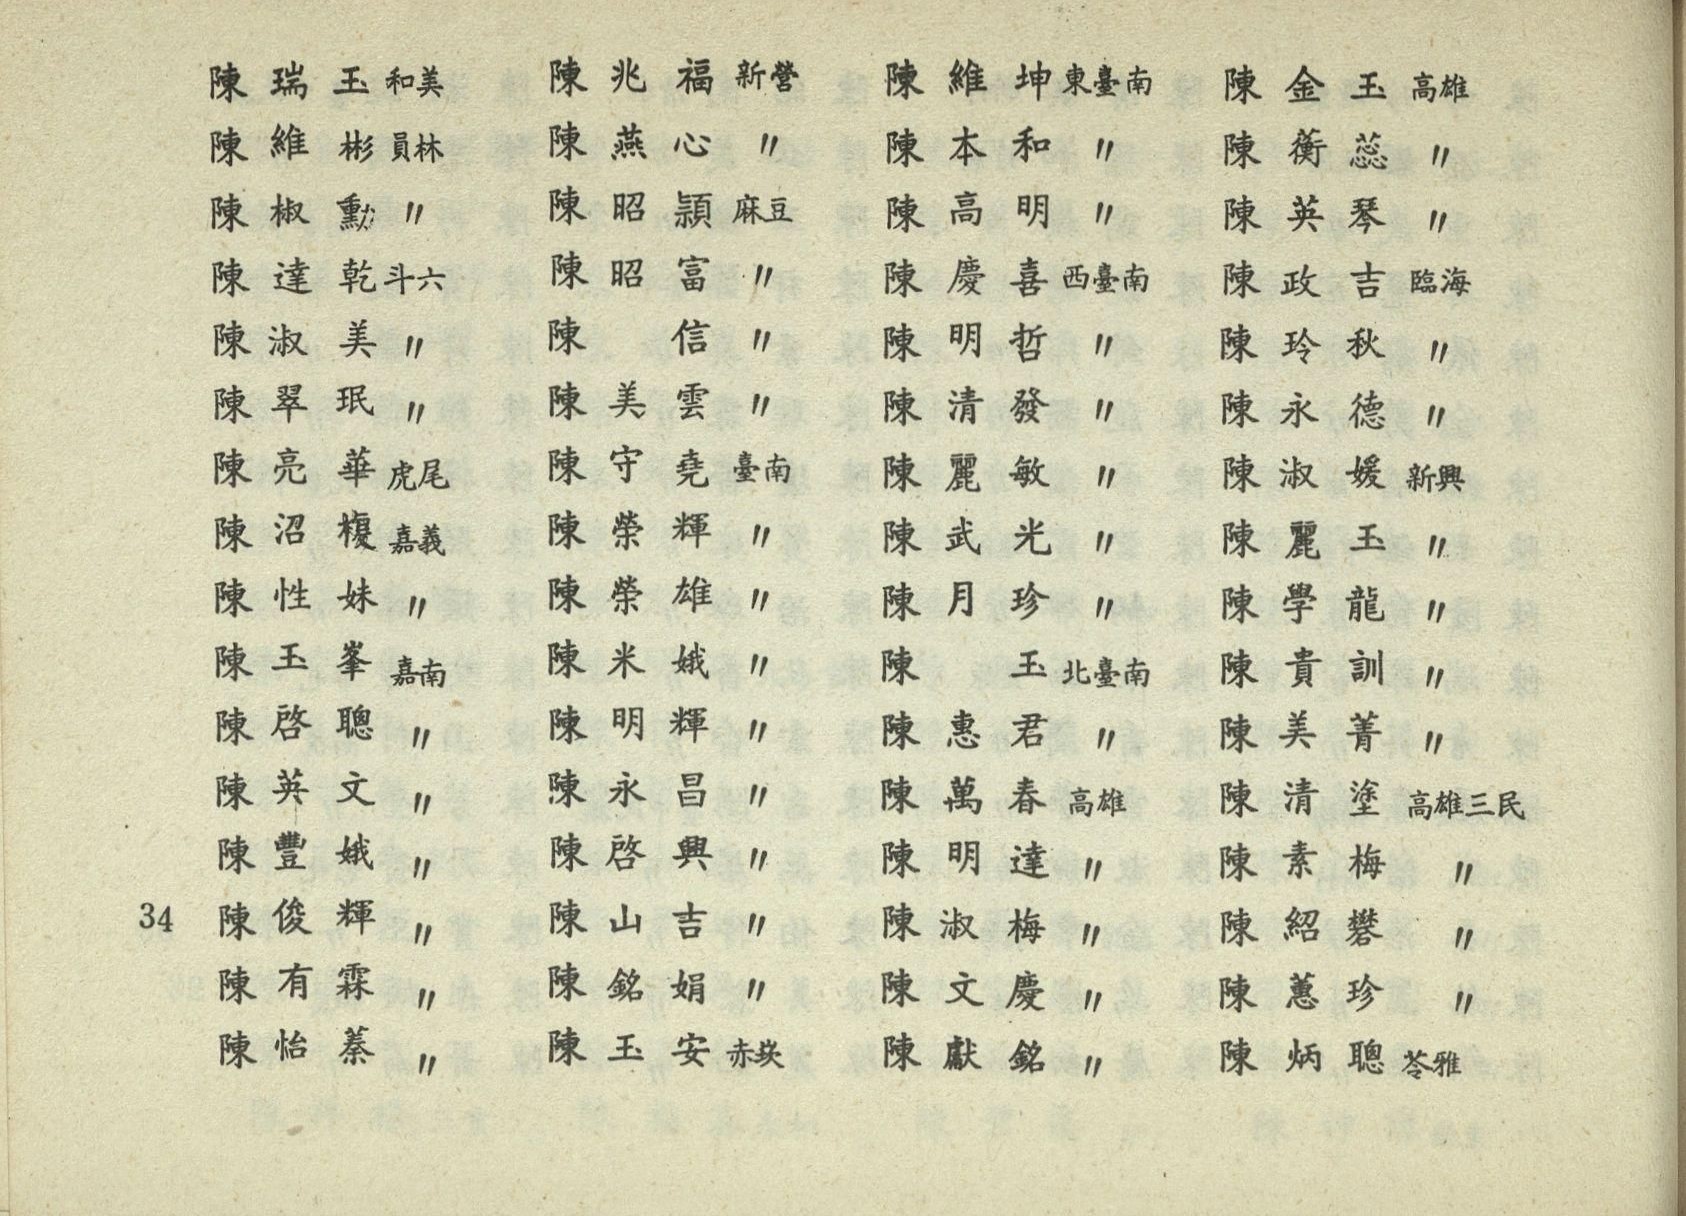 陳瑞玉 和美
陳維彬 員林
陳椒勳 〃
陳達乾 斗六
陳淑美 〃
陳翠珉 〃
陳亮華 虎尾
陳沼榎 嘉義
陳性妹 〃
陳玉峯 嘉南
陳啓聰 〃
陳英文 〃
陳豐娥 〃
陳俊輝 〃
陳有霖 〃
陳怡蓁 〃
陳兆福 新營
陳燕心 〃
陳昭頴 麻豆
陳昭富 〃
陳信 〃
陳美雲 〃
陳守堯 臺南
陳榮輝 〃
陳榮雄 〃
陳米娥 〃
陳明輝 〃
陳永昌 〃
陳啓興 〃
陳山吉 〃
陳銘娟 〃
陳玉安 赤崁
陳維坤 東臺南
陳本和 〃
陳高明 〃
陳慶喜 西臺南
陳明哲 〃
陳清發 〃
陳麗敏 〃
陳武光 〃
陳月珍 〃
陳玉 北臺南
陳惠君 〃
陳萬春 高雄
陳明達 〃
陳淑梅 〃
陳文慶 〃
陳獻銘 〃
陳金玉 高雄
陳蘅蕊 〃
陳英琴 〃
陳政吉 臨海
陳玲秋 〃
陳永德 〃
陳淑媛 新興
陳麗玉 〃
陳學龍 〃
陳貴訓 〃
陳美菁 〃
陳清塗 高雄三民
陳素梅 〃
陳紹礬 〃
陳蕙珍 〃
陳炳聰 苓雅
34